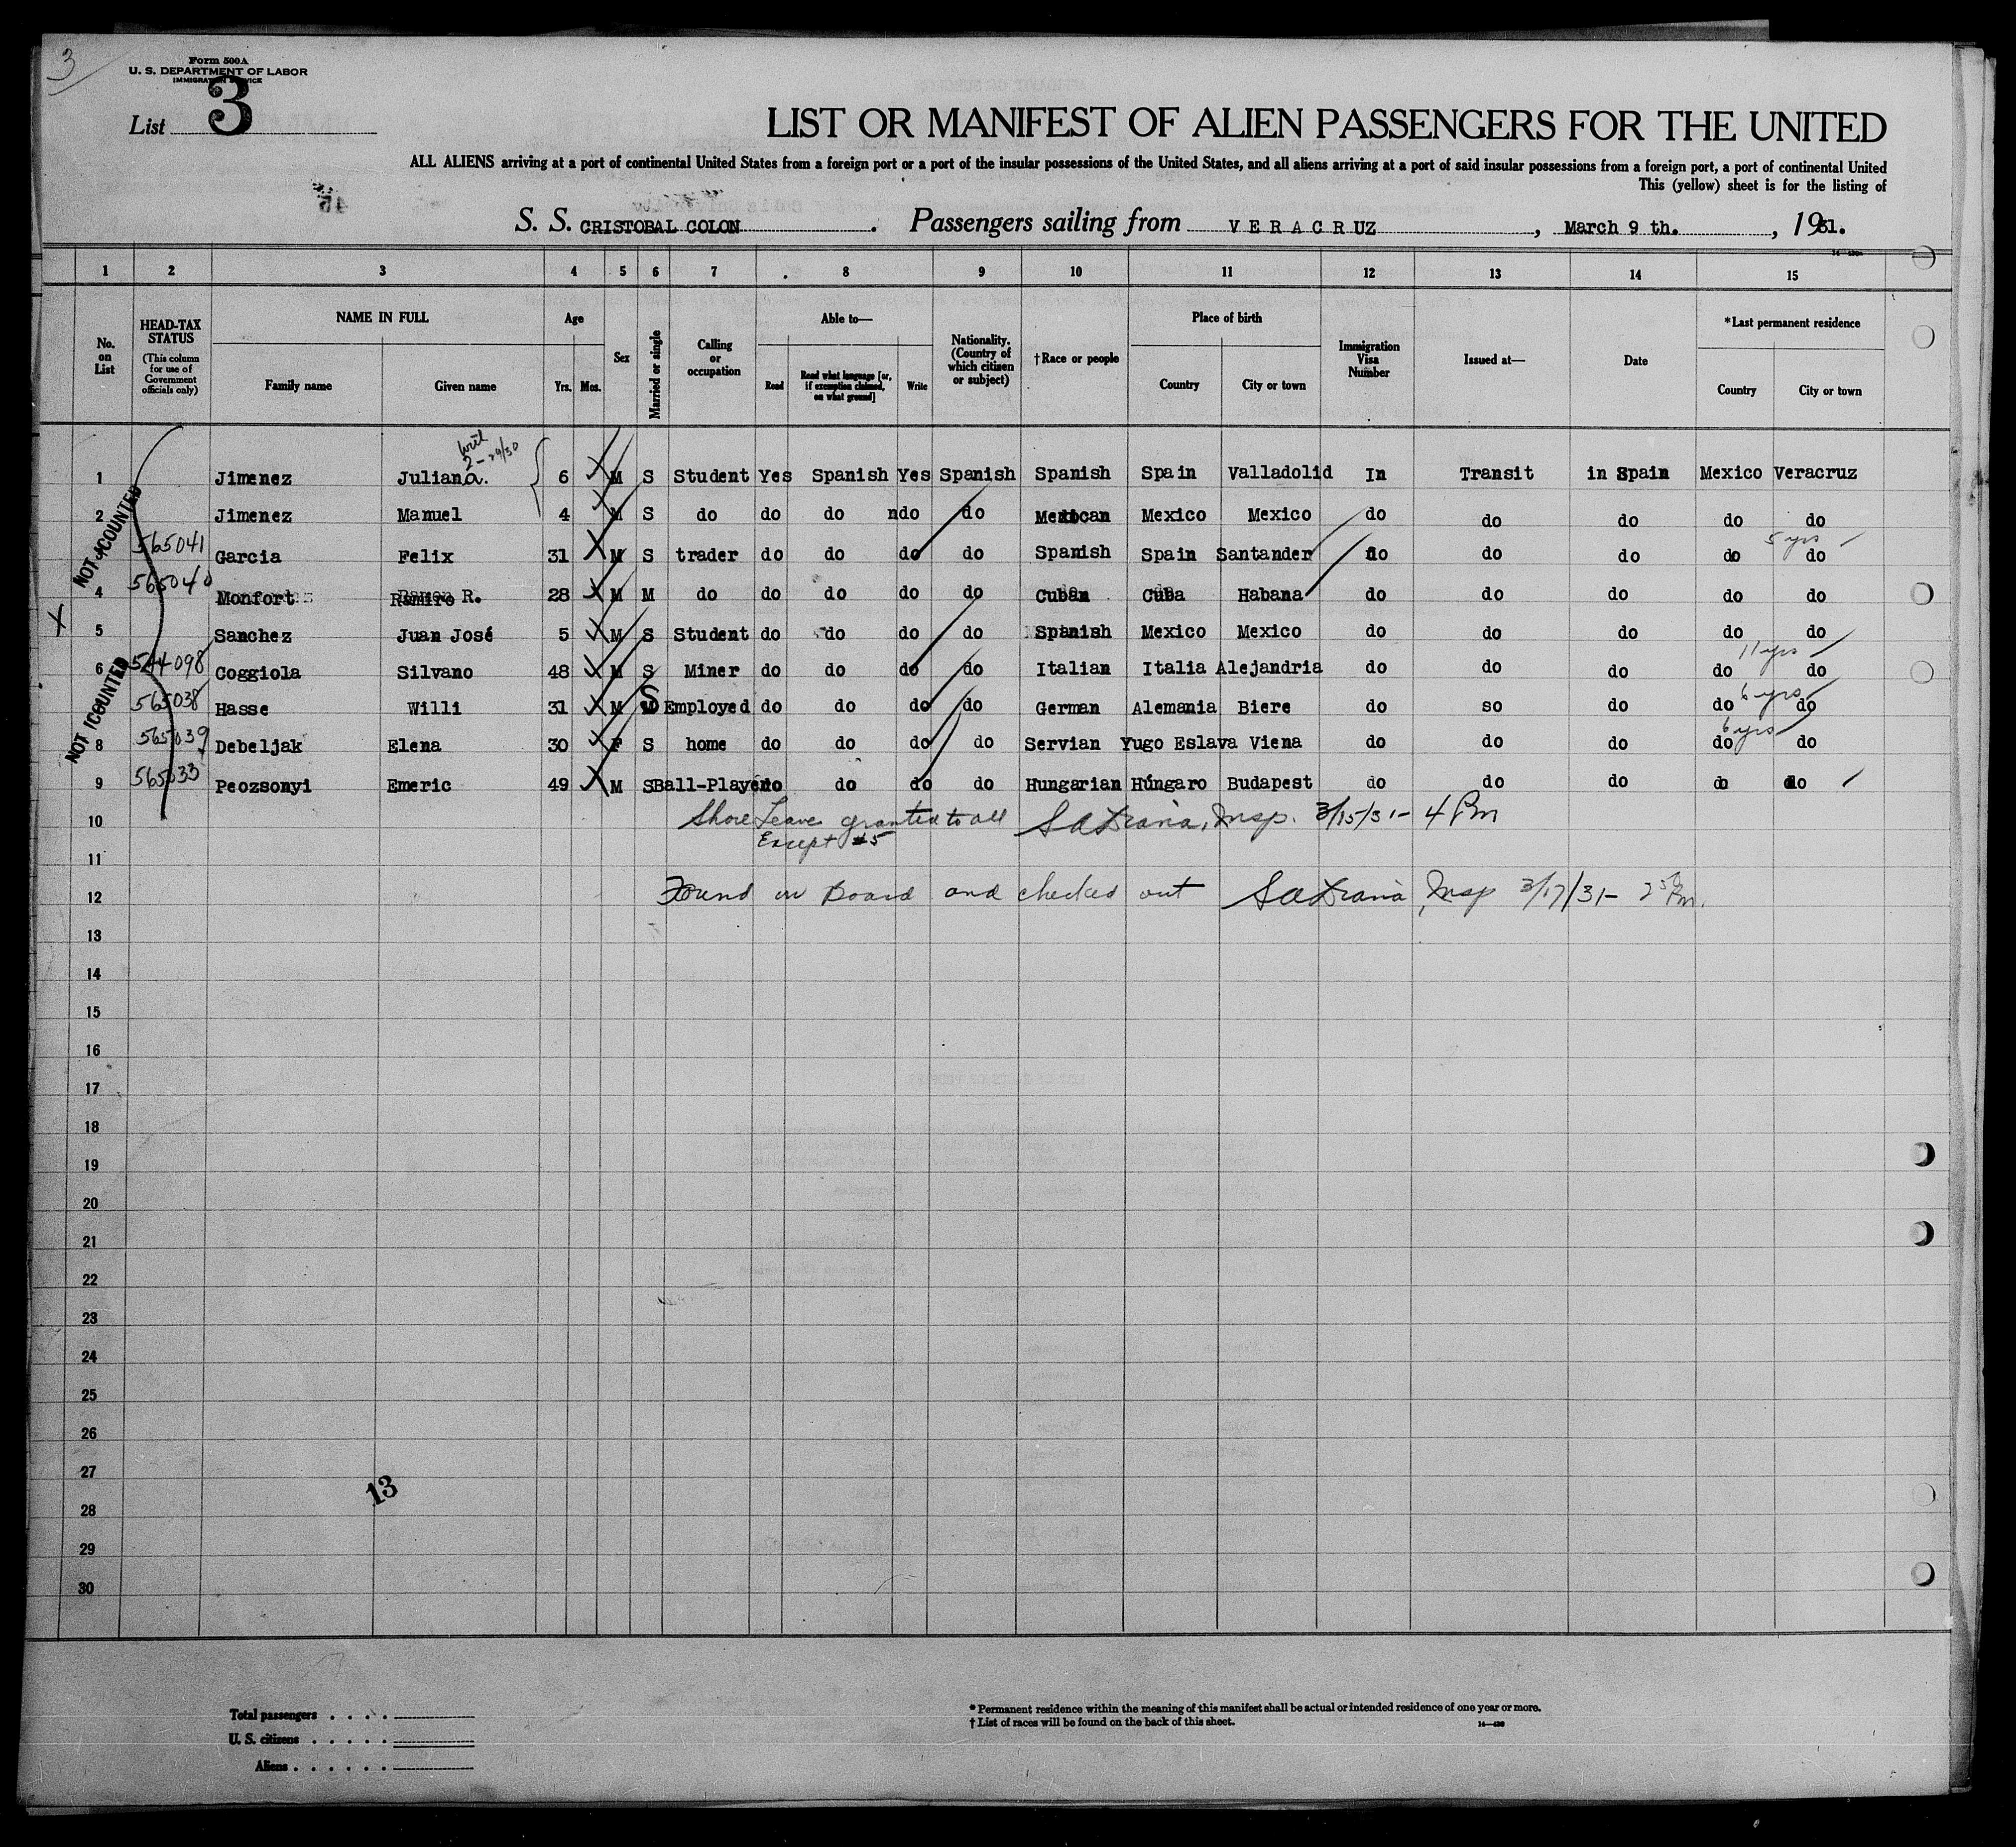 3
Form 500A
U. S. DEPARTMENT OF LABOR
IMMIGRATION SERVICE
List 3
LIST OR MANIFEST OF ALIEN PASSENGERS FOR THE UNITED
ALL ALIENS arriving at a port of continental United States from a foreign port or a port of the insular possessions of the United States, and all aliens arriving at a port of said insular possessions from a foreign port, a port of continental United
This (yellow) sheet is for the listing of
S. S. CRISTOBAL COLON. Passengers sailing from VERACRUZ, March 9 th., 1931.
1 2 3 4 5 6 7 8 9 10 11 12 13 14 15
No. on List
HEAD-TAX STATUS (This column for use of Government officials only)
NAME IN FULL Family name Given name
Age Yrs. Mos.
Sex
Married or single
Calling or occupation
Able to— Read Read what language [or, if exemption claimed, on what ground] Write
Nationality. (Country of which citizen or subject)
†Race or people
Place of birth Country City or town
Immigration Visa Number
Issued at—
Date
*Last permanent residence Country City or town
2-24/30
1 Jimenez Juliana. 6 M S Student Yes Spanish Yes Spanish Spanish Spain Valladolid In Transit in Spain Mexico Veracruz
2 Jimenez Manuel 4 M S do do do ndo do Mexican Mexico Mexico do do do do do
5 yrs
565041 Garcia Felix 31 M S trader do do do do Spanish Spain Santander do do do do do
4 565040 Monfort Ramiro R. 28 M M do do do do do Cuban Cuba Habana do do do do do
X 5 Sanchez Juan José 5 M S Student do do do do Spanish Mexico Mexico do do do do do
11 yrs
6 544098 Coggiola Silvano 48 M S Miner do do do do Italian Italia Alejandria do do do do do
6 yrs
565038 Hasse Willi 31 M S Employed do do do do German Alemania Biere do so do do do
6 yrs
8 565039 Debeljak Elena 30 F S home do do do do Servian Yugo Eslava Viena do do do do do
9 565033 Peozsonyi Emeric 49 M S Ball-Player do do do do Hungarian Húngaro Budapest do do do do do
NOT COUNTED
NOT COUNTED
10 Shore Leave granted to all Insp. 3/15/31- 4 Pm
Except #5
11
12 Found on Board and checked out Insp 3/17/31-
13
14
15
16
17
18
19
20
21
22
23
24
25
26
27
13
28
29
30
Total passengers . . . .
U. S. citizens . . . . .
Aliens . . . . . .
* Permanent residence within the meaning of this manifest shall be actual or intended residence of one year or more.
† List of races will be found on the back of this sheet.